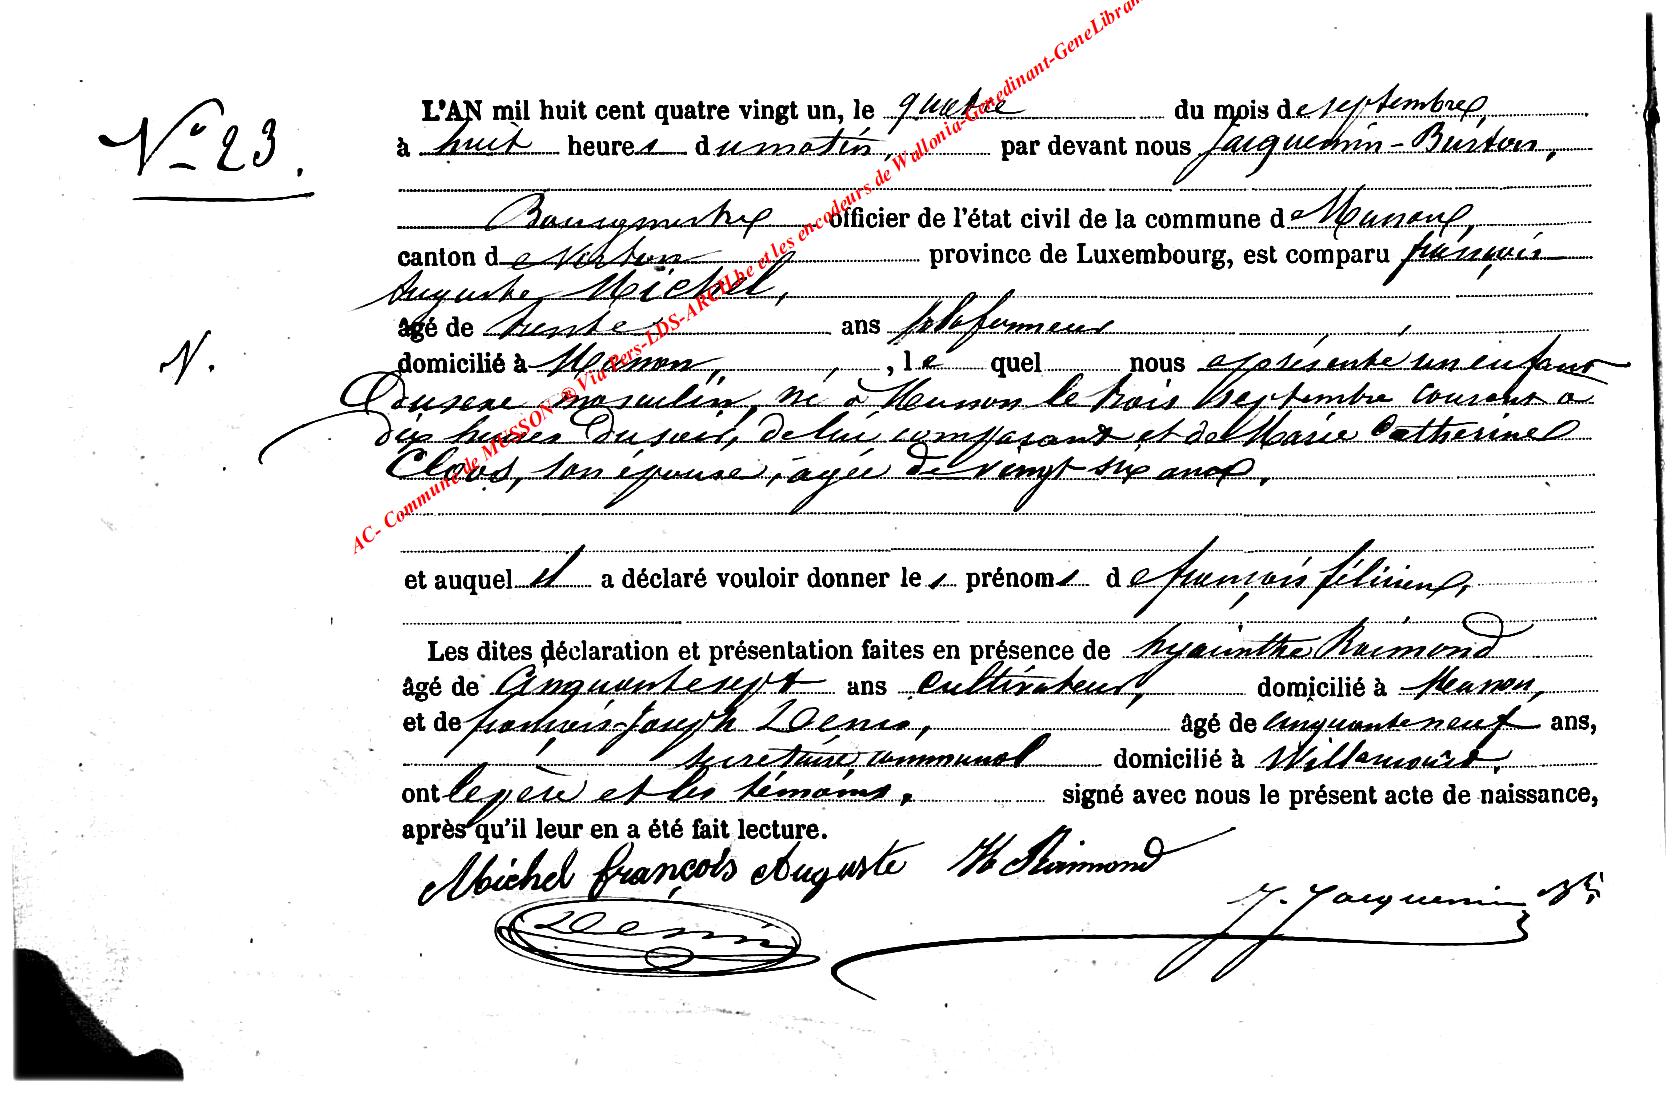 N° 23.
N.
L'AN mil huit cent quatre vingt un, le quatre du mois de septembre,
à huit heures du matin, par devant nous Jacquemin-Burton,
Bourgmestre officier de l'état civil de la commune de Musson,
canton de Virton province de Luxembourg, est comparu françois
Auguste Michel,
âgé de trente ans plafonneur
domicilié à Musson, , le quel nous a présenté un enfant
du sexe masculin, né à Musson le trois septembre courant a
dix heures du soir, de lui comparant et de Marie Catherine
son épouse, agée de vingt six ans.
et auquel il a déclaré vouloir donner les prénoms de françois félicien,
Les dites déclaration et présentation faites en présence de hyacinthe Raimond
âgé de Cinquante sept ans Cultivateur, domicilié à Musson,
et de françois-Joseph Denis, âgé de cinquante neuf ans,
secrétaire communal domicilié à Willancourt,
ont le père et les témoins, signé avec nous le présent acte de naissance,
après qu'il leur en a été fait lecture.
Michel françois Auguste H Raimond
J. Jacquemin
Denis
AC- Commune de MUSSON ® Via Pers-LDS-ARCH.be et les encodeurs de Wallonia-Genedinant-GeneLibran